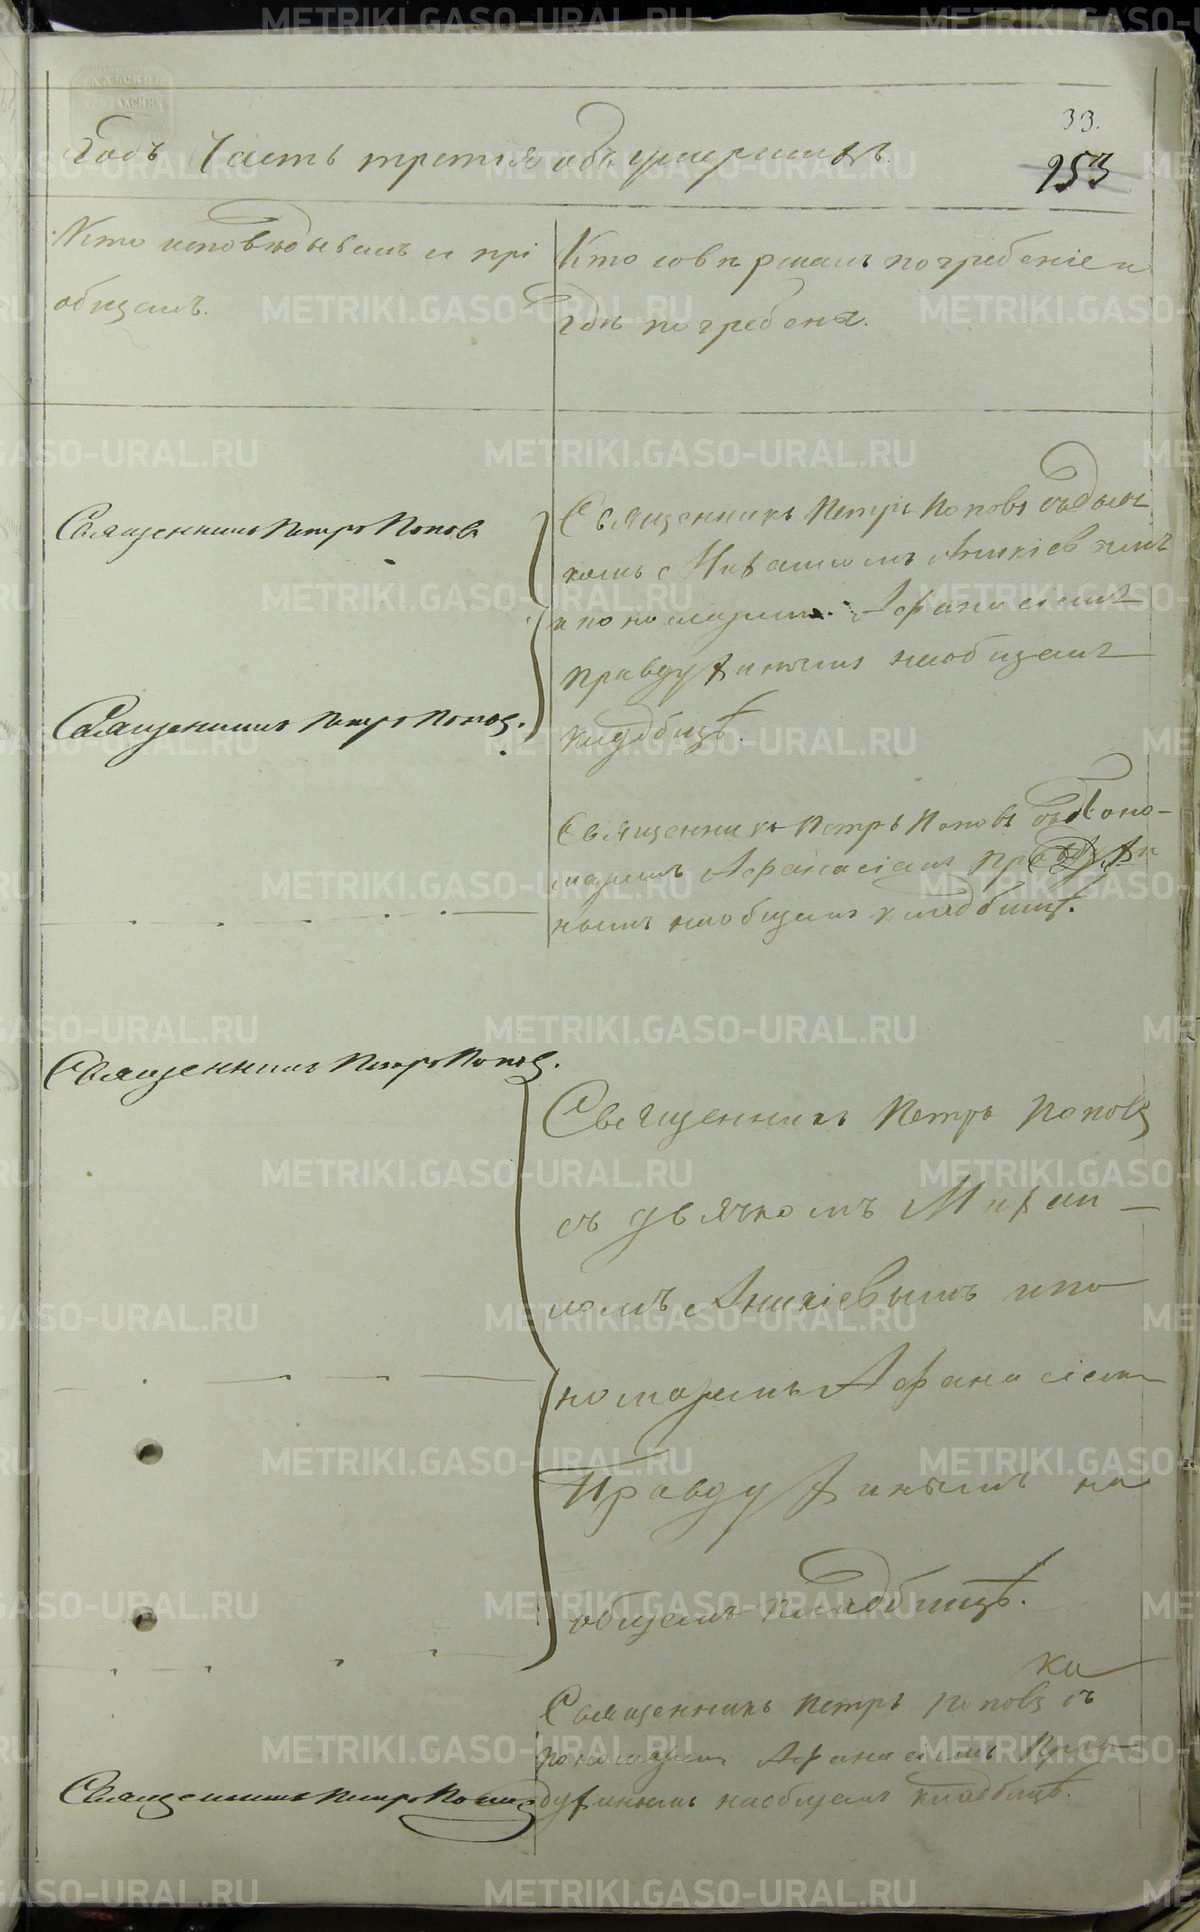 33.
253
Годъ Часть третія объ умершихъ.
Кто исповѣдывалъ и прі
общалъ.
Кто совершалъ погребеніе и
гдѣ погребены.
Священникъ Петръ Поповъ
Священникъ Петръ Поповъ.
Священникъ Петръ Поповъ съ дьяч
комъ
и пономаремъ Афанасіемъ
Правдухинымъ на общемъ
кладбищѣ.
Священникъ Петръ Поповъ съ поно-
маремъ Афанасіемъ Правдухи
нымъ на общемъ кладбищѣ.
Священникъ Петръ Поповъ.
Священникъ Петръ Поповъ
съ дьячкомъ
Аникіевымъ и по
номаремъ Афанасіемъ
Правдухинымъ на
общемъ кладбищѣ.
Священникъ Петръ Поповъ съ
пономаремъ Афанасіемъ Прав
Священникъ Петръ Поповъ
духинымъ на общемъ кладбищѣ.
METRIKI.GASO-URAL.RU